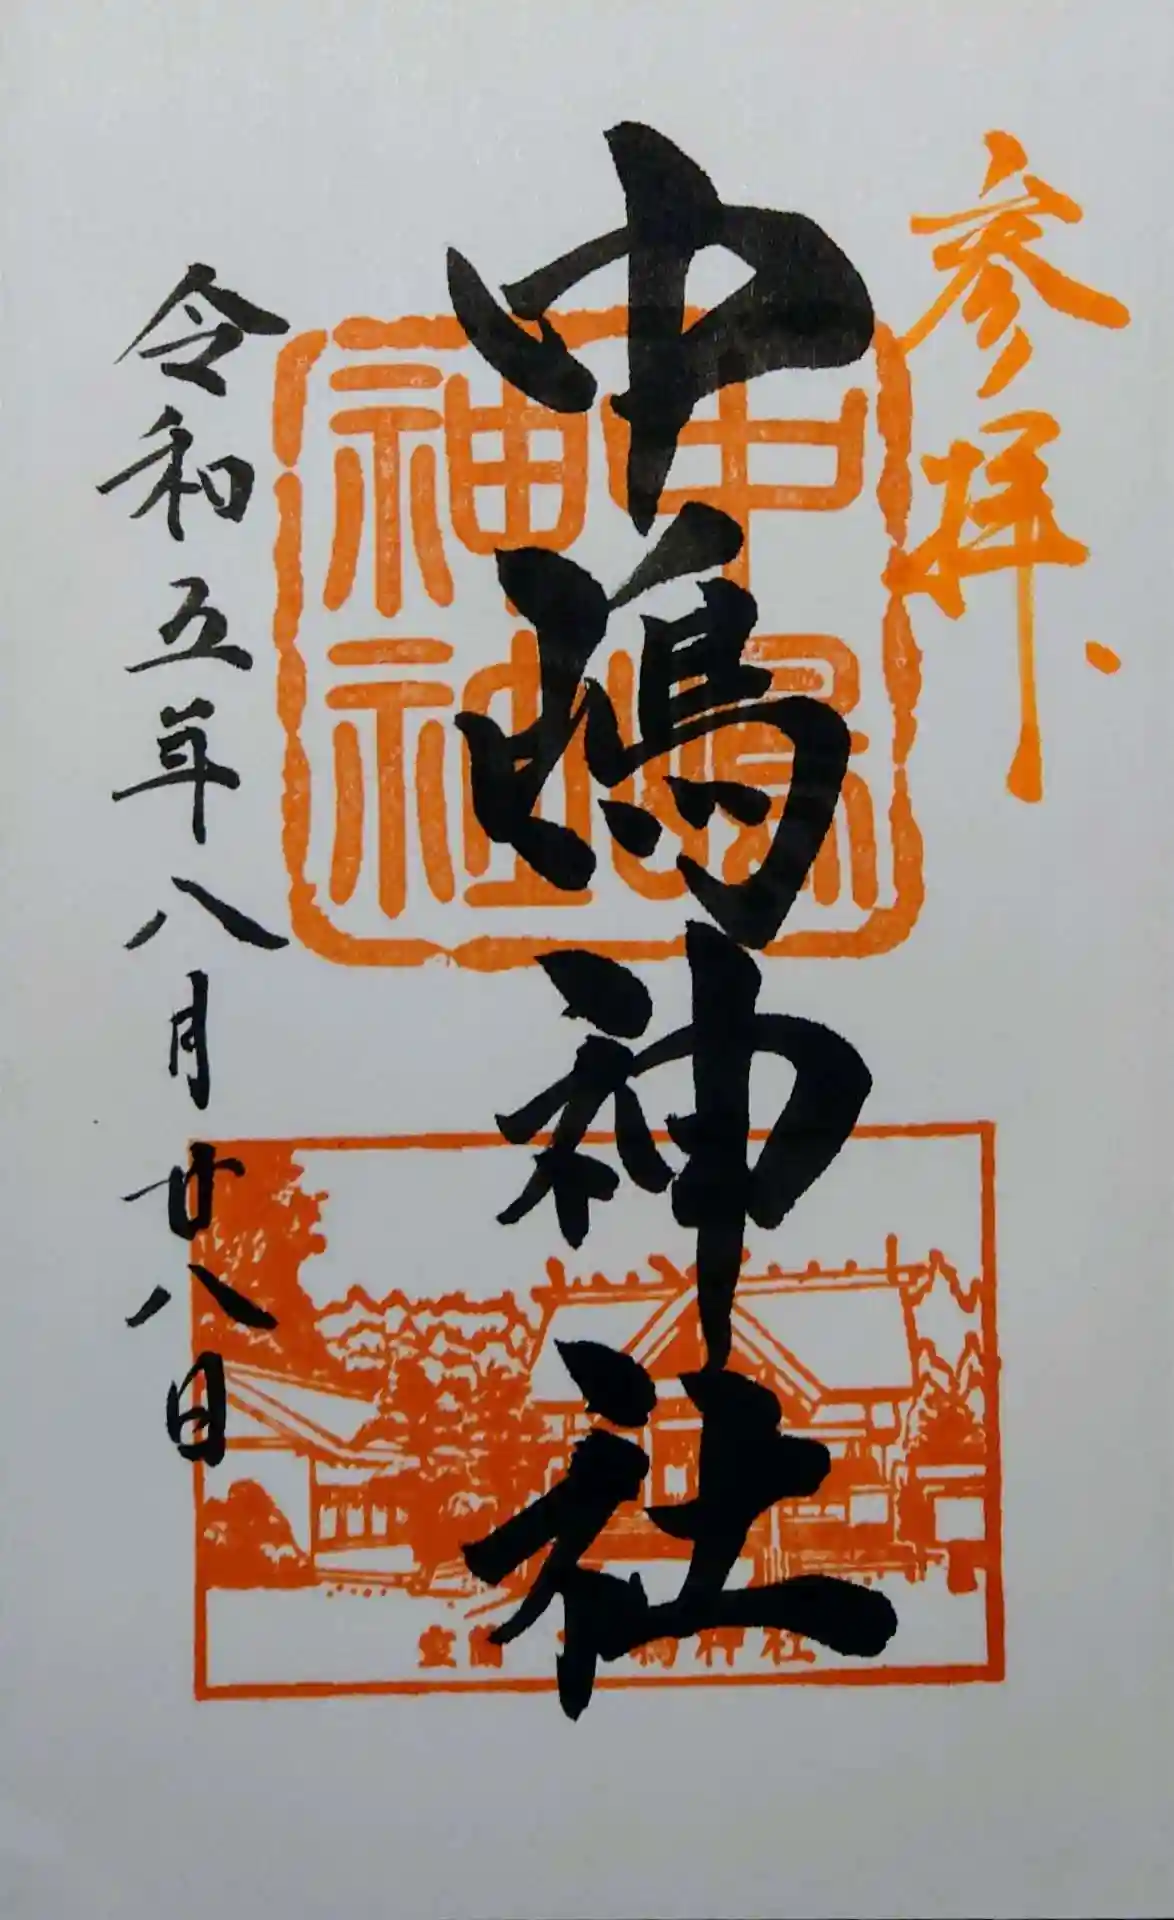 参拝
中嶋神社
中嶋
神社
令和五年八月廿八日
室蘭 嶋神社